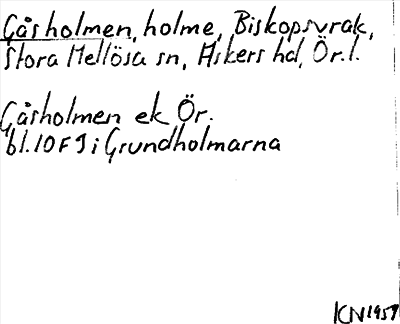 Gåsholmen, holme, Biskopsvrak,
Stora Mellösa sn, Askers hd, Ör. l.
Gåsholmen ek Ör.
bl. 10 F 9 i Grundholmarna
KN 1957